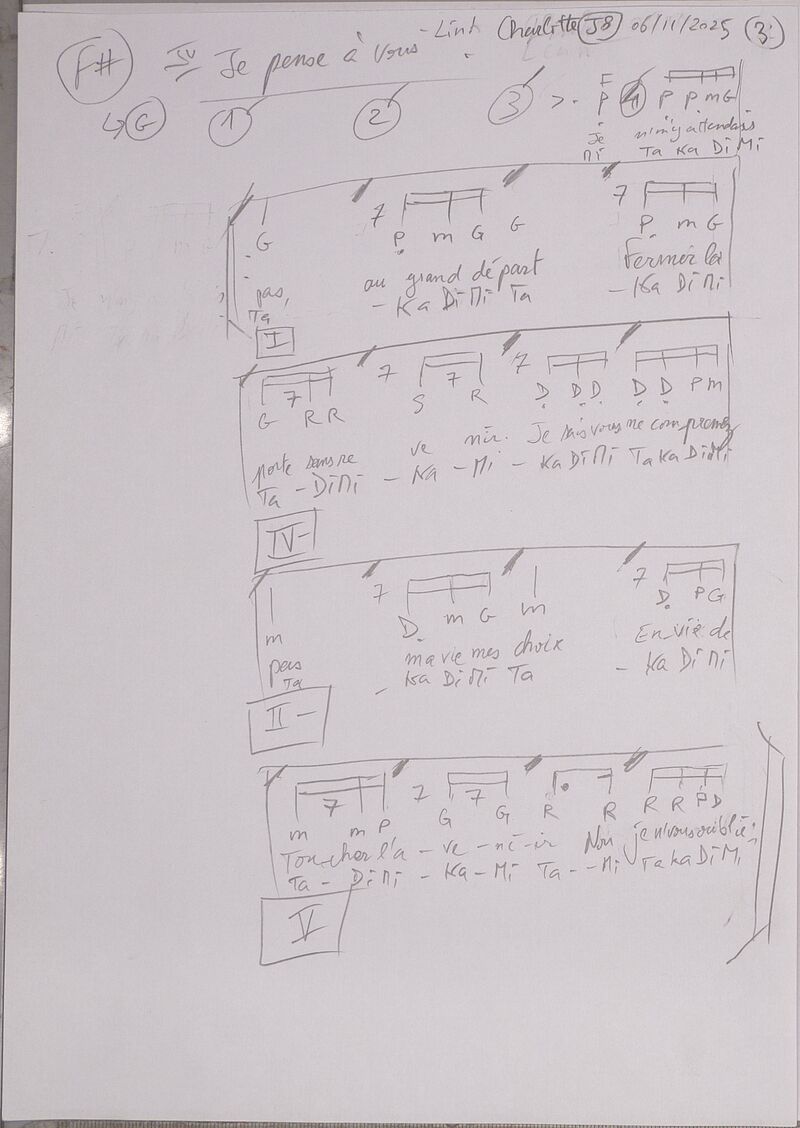 F# IV Je pense à vous - Linh Charlotte J8 06/11/2025 3
↳ G 1 2 3 > . F P 4 P P m G
Je n'm'y attendais
Mi Ta Ka Di Mi
G 7 P m G G 7 P m G
pas, au grand départ Fermer la
Ta - Ka Di Mi Ta - Ka Di Mi
I
G 7 R R 7 S 7 R 7 D D D D D P m
porte sans re ve nir. Je sais vous ne comprenez
Ta - Di Mi - Ka - Mi - Ka Di Mi Ta Ka Di Mi
IV-
m 7 D m G m 7 D P G
pas ma vie mes choix Envie de
Ta - Ka Di Mi Ta - Ka Di Mi
II -
m 7 m P 7 G 7 G R R R R P D
Toucher l'a - ve - ni - ir Non je n'vous oublie
Ta - Di Mi - Ka - Mi Ta - - Mi Ta Ka Di Mi
V